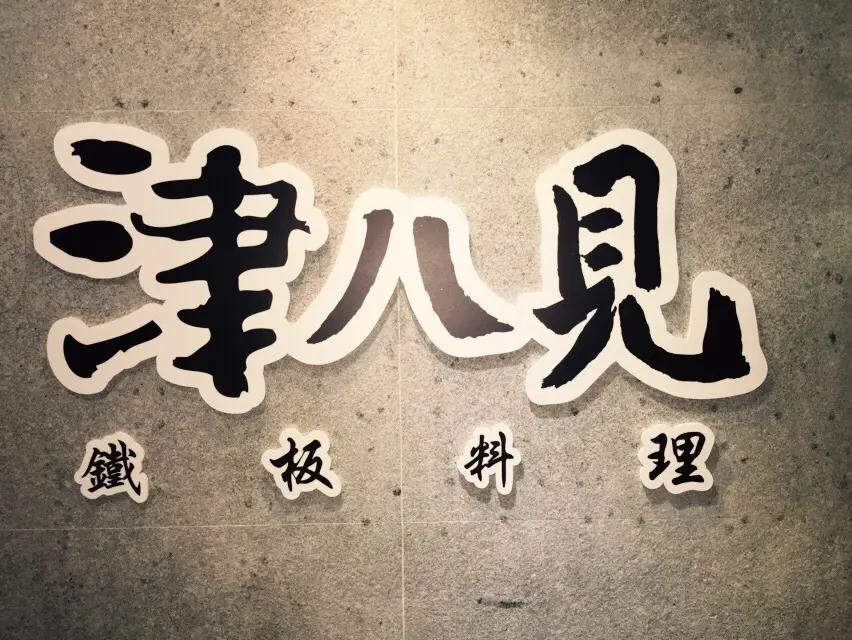 津八見
鐵板料理